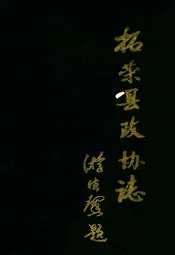 柘荣县政协志
游德馨题